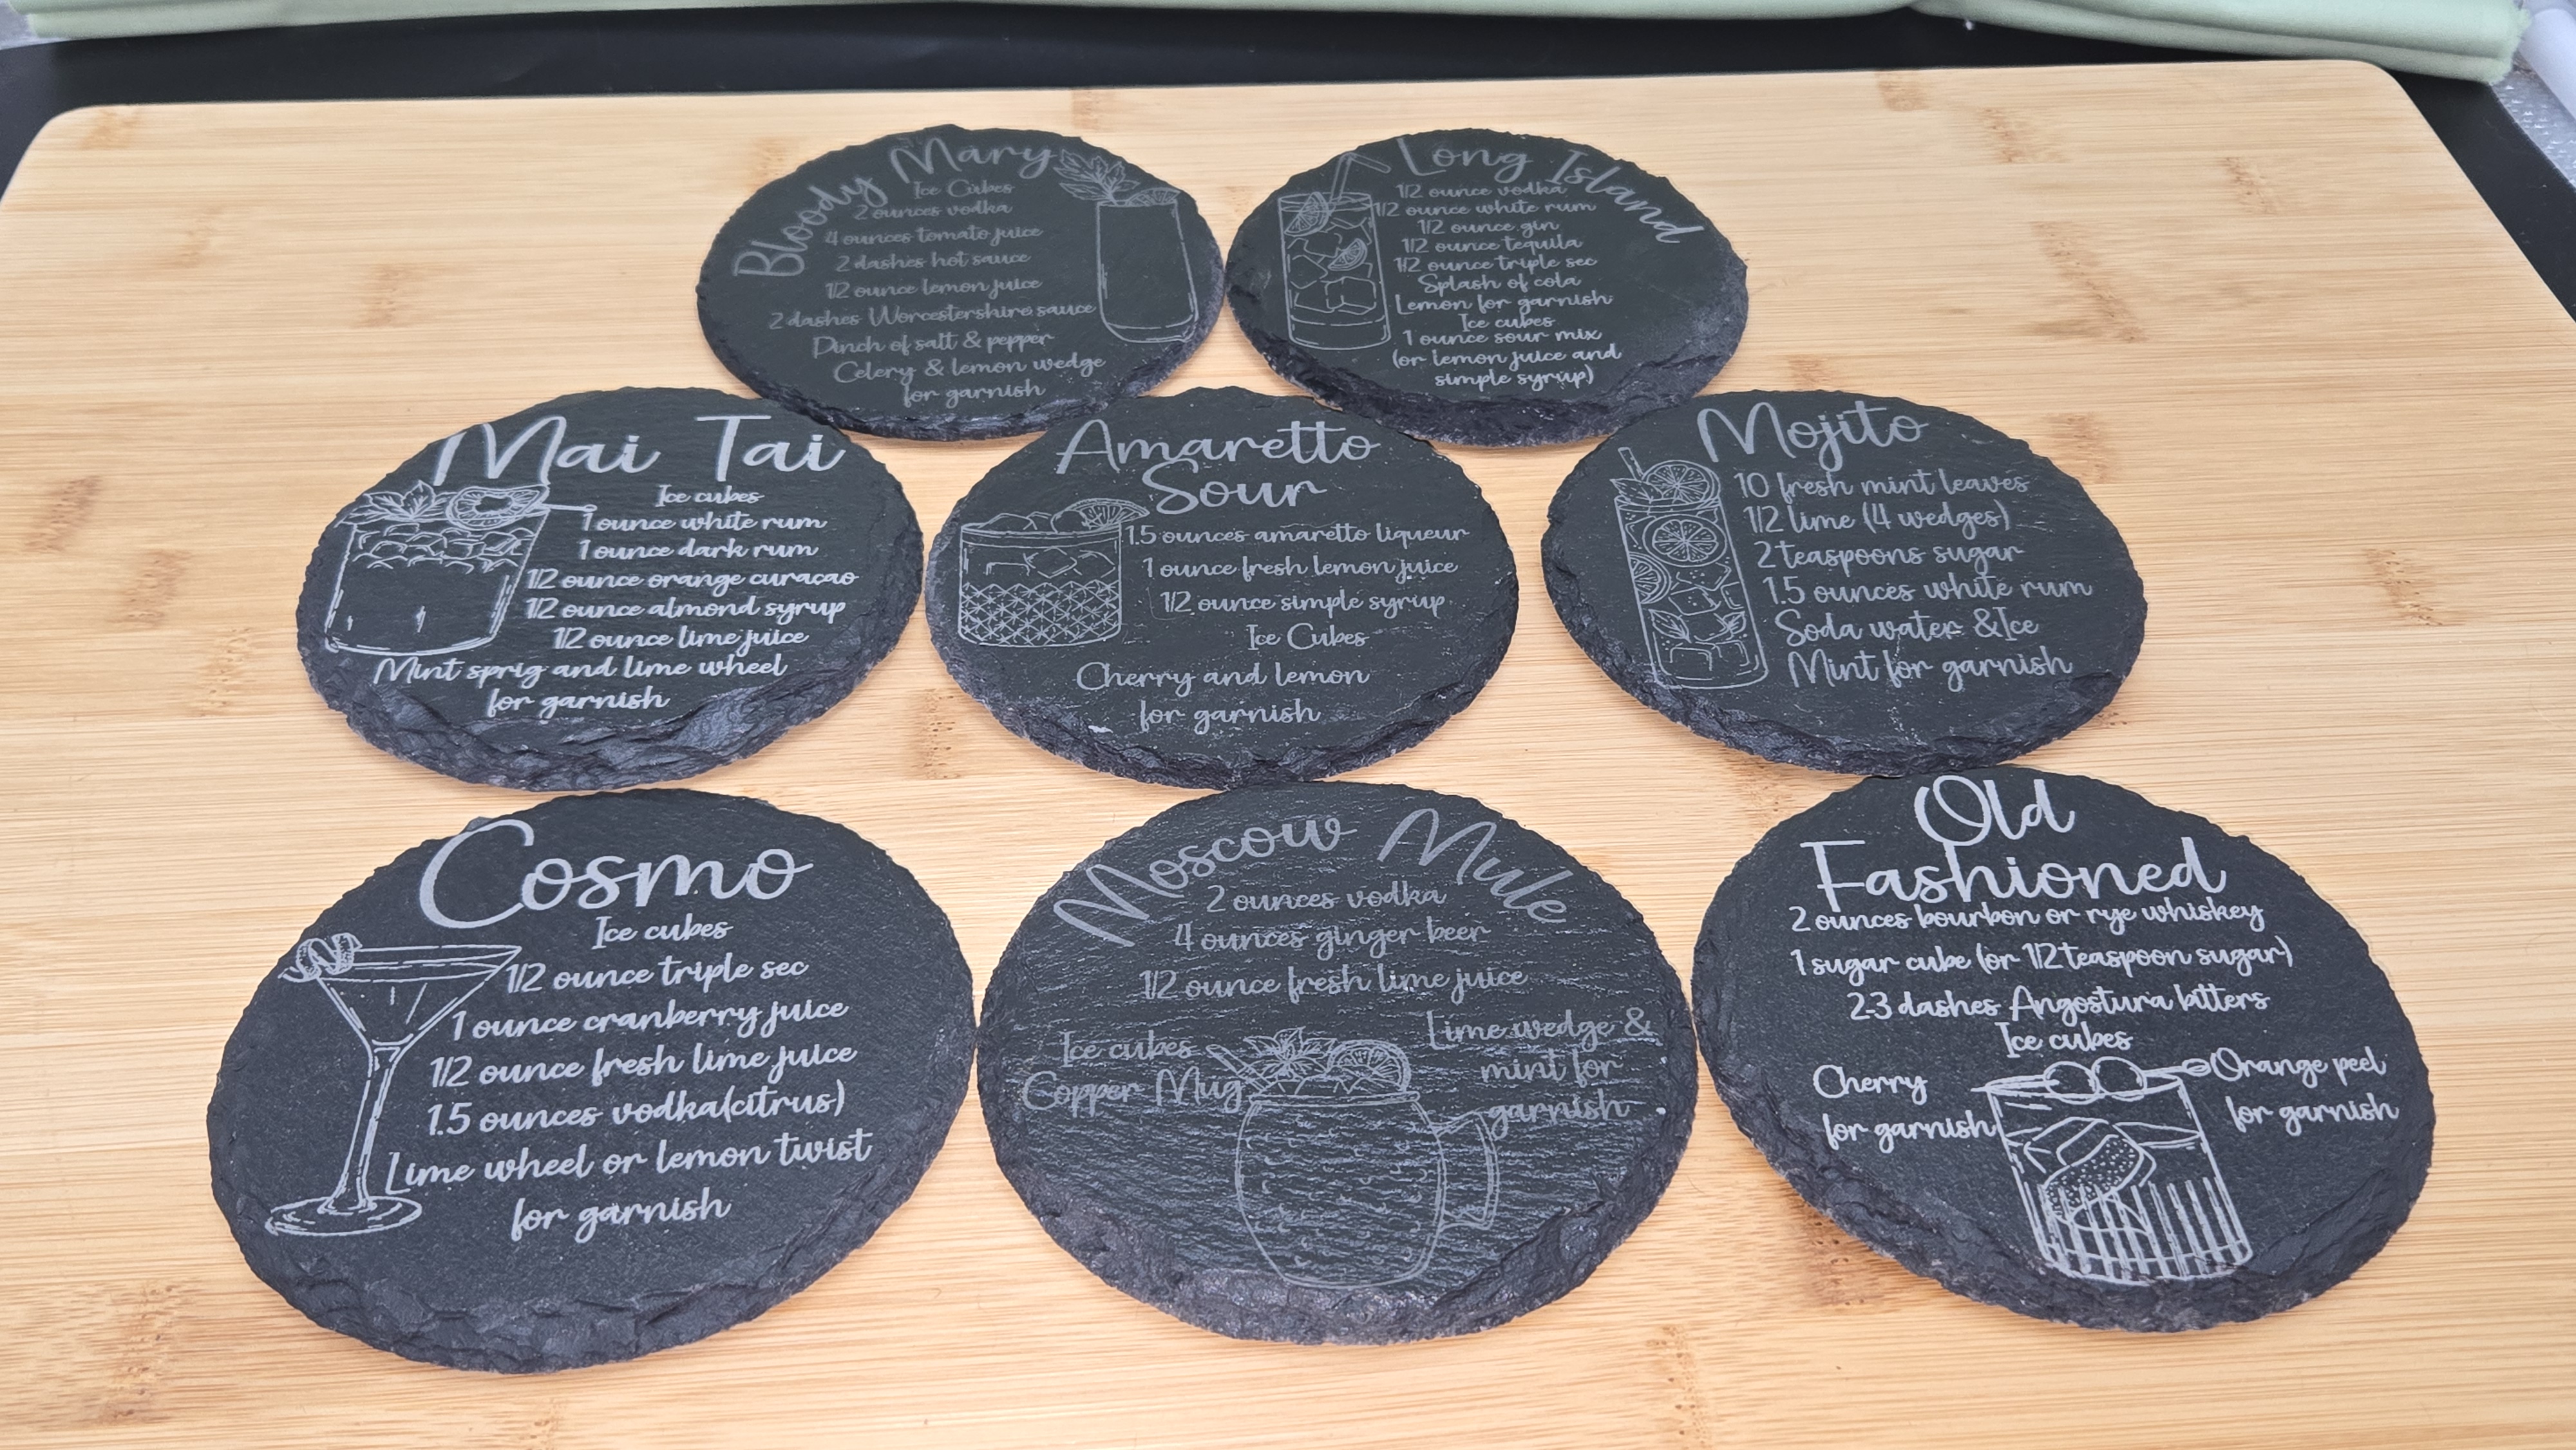 Bloody Mary
Ice Cubes
2 ounces vodka
4 ounces tomato juice
2 dashes hot sauce
1/2 ounce lemon juice
2 dashes Worcestershire sauce
Pinch of salt & pepper
Celery & lemon wedge
for garnish
Long Island
1/2 ounce vodka
1/2 ounce white rum
1/2 ounce gin
1/2 ounce tequila
1/2 ounce triple sec
Splash of cola
Lemon for garnish
Ice cubes
1 ounce sour mix
(or lemon juice and
simple syrup)
Mai Tai
Ice cubes
1 ounce white rum
1 ounce dark rum
1/2 ounce orange curacao
1/2 ounce almond syrup
1/2 ounce lime juice
Mint sprig and lime wheel
for garnish
Amaretto
Sour
1.5 ounces amaretto liqueur
1 ounce fresh lemon juice
1/2 ounce simple syrup
Ice Cubes
Cherry and lemon
for garnish
Mojito
10 fresh mint leaves
1/2 lime (4 wedges)
2 teaspoons sugar
1.5 ounces white rum
Soda water &Ice
Mint for garnish
Cosmo
Ice cubes
1/2 ounce triple sec
1 ounce cranberry juice
1/2 ounce fresh lime juice
1.5 ounces vodka(citrus)
Lime wheel or lemon twist
for garnish
Moscow Mule
2 ounces vodka
4 ounces ginger beer
1/2 ounce fresh lime juice
Ice cubes
Copper Mug
Lime wedge &
mint for
garnish
Old
Fashioned
2 ounces bourbon or rye whiskey
1 sugar cube (or 1/2 teaspoon sugar)
2-3 dashes Angostura bitters
Ice cubes
Cherry
for garnish
Orange peel
for garnish